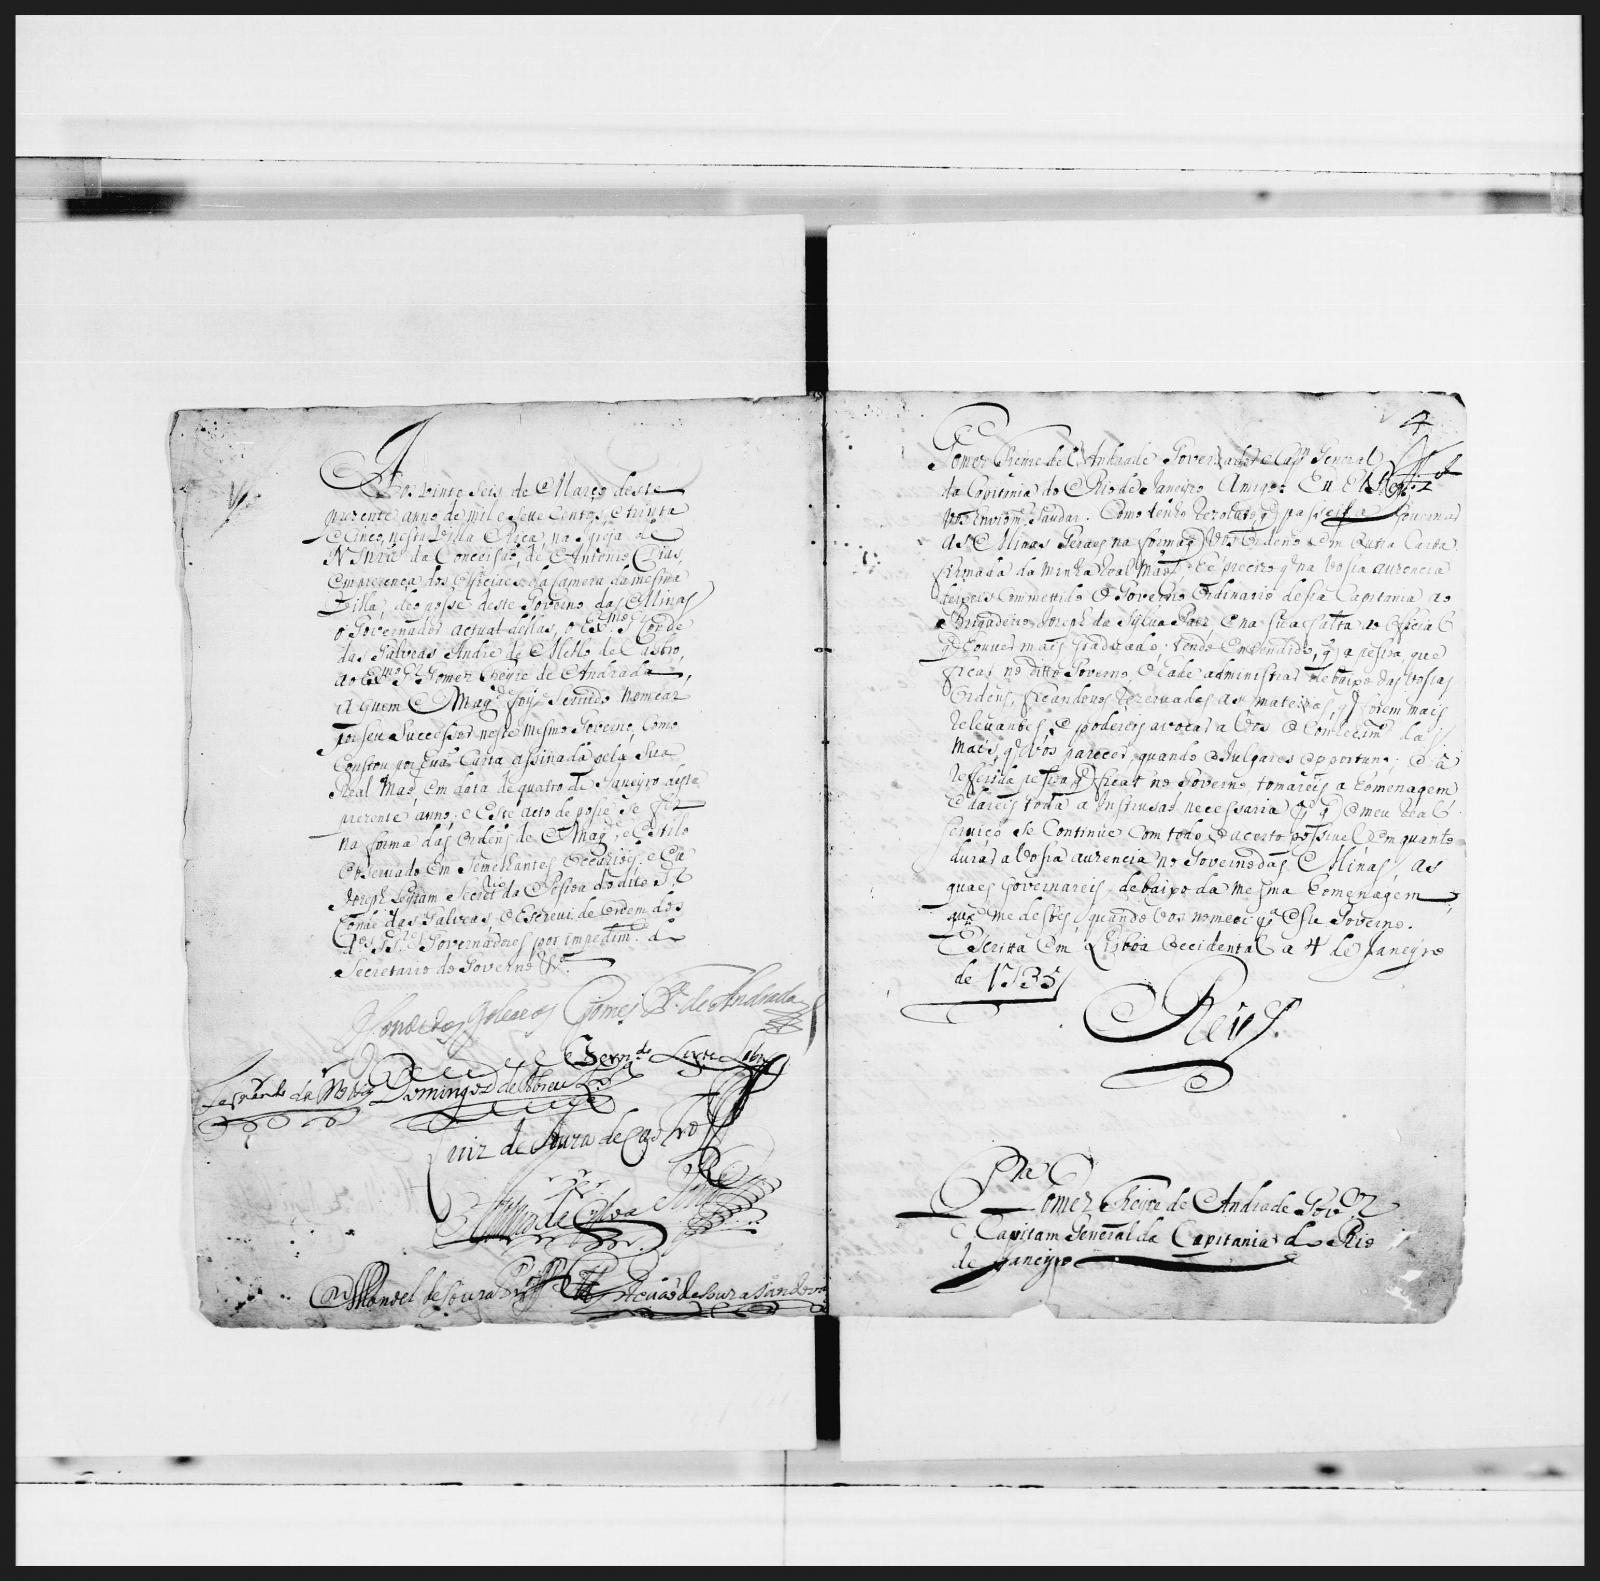 Aos vinte Seis de Março deste
prezente anno de mil e Sette Centos, e trinta
e Cinco, nesta Villa Rica, na Igreja de
N. Snrã da Conceisão, de Antonio Dias,
em prezença dos officiaes da Camera da mesma
Villa, deo posse deste Governo das Minas
o Governador actual dellas, o Ex.mo S.r Conde
das Galveas Andre de Mello de Castro,
ao Ex.mo S.r Gomez Freyre de Andrada,
a quem S. Mag.de foy servido nomear
por seu Successor neste mesmo Governo, como
Constou por hua Carta assinada pela Sua
Real Mão, em data de quatro de Janeyro deste
prezente anno; e este acto de posse se fez
na forma das ordens de S. Mag.de, e estilo
observado em Semelhantes occazioẽs; e Eu
Joseph Leytam Secret.ro da Pessoa do dito S.r
Conde das Galveas, o Escrevi de ordem dos
d.os SS.res Governadores por impedim.to do
Secretario do Governo
Conde das Galveas Gomes Fr.e de Andrada
Bern.do Leyte Lobo
Fernando da Motta Domingos de Abreu Lx.a
Luiz de Souza de Castro
da Sylva
Manoel de Souza
de Souza Sandoval
4
Gomez Freire de Andrade Governador e Cap.m General
da Capitania do Rio de Janeyro Amigo: Eu El Rey
vos envio m.to Saudar. Como tenho rezoluto, q passeis a Governar
as Minas Geraes na forma q vos ordeno em outra Carta
firmada da minha Real Mão, he precizo q na vossa auzencia
deixeis Commettido o Governo ordinario dessa Capitania ao
Brigadeiro Joseph da Sylva Paez e na sua falta ao official
q houver mais graduado; tendo entendido, q a pessoa, que
ficar no ditto Governo, o hade administrar debaixo das vossas
ordens, ficandovos rezervadas as materias, q forem mais
relevantes, e podereis avocar a vos o Conhecim.to das
mais, q vos parecer, quando o julgares opportuno; e da
referida pessoa q ficar no Governo tomareis a homenagem
e dareis toda a instrusaõ necessaria p.a q o meu Real
serviço se Continue Com todo o acerto possivel em quanto
durar a vossa auzencia no Governo das Minas, as
quaes governareis debaixo da mesma homenagem
que me destes, quando vos nomeei p.a esse Governo.
Escritta em Lisboa occidental a 4 de Janeyro
de 1735
Rey
P.a
Gomez Freyre de Andrade Gov.or
e Capitam General da Capitania do Rio
de Janeyro